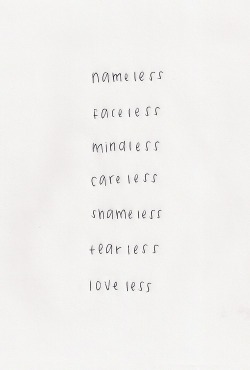 nameless
faceless
mindless
careless
shameless
tearless
loveless